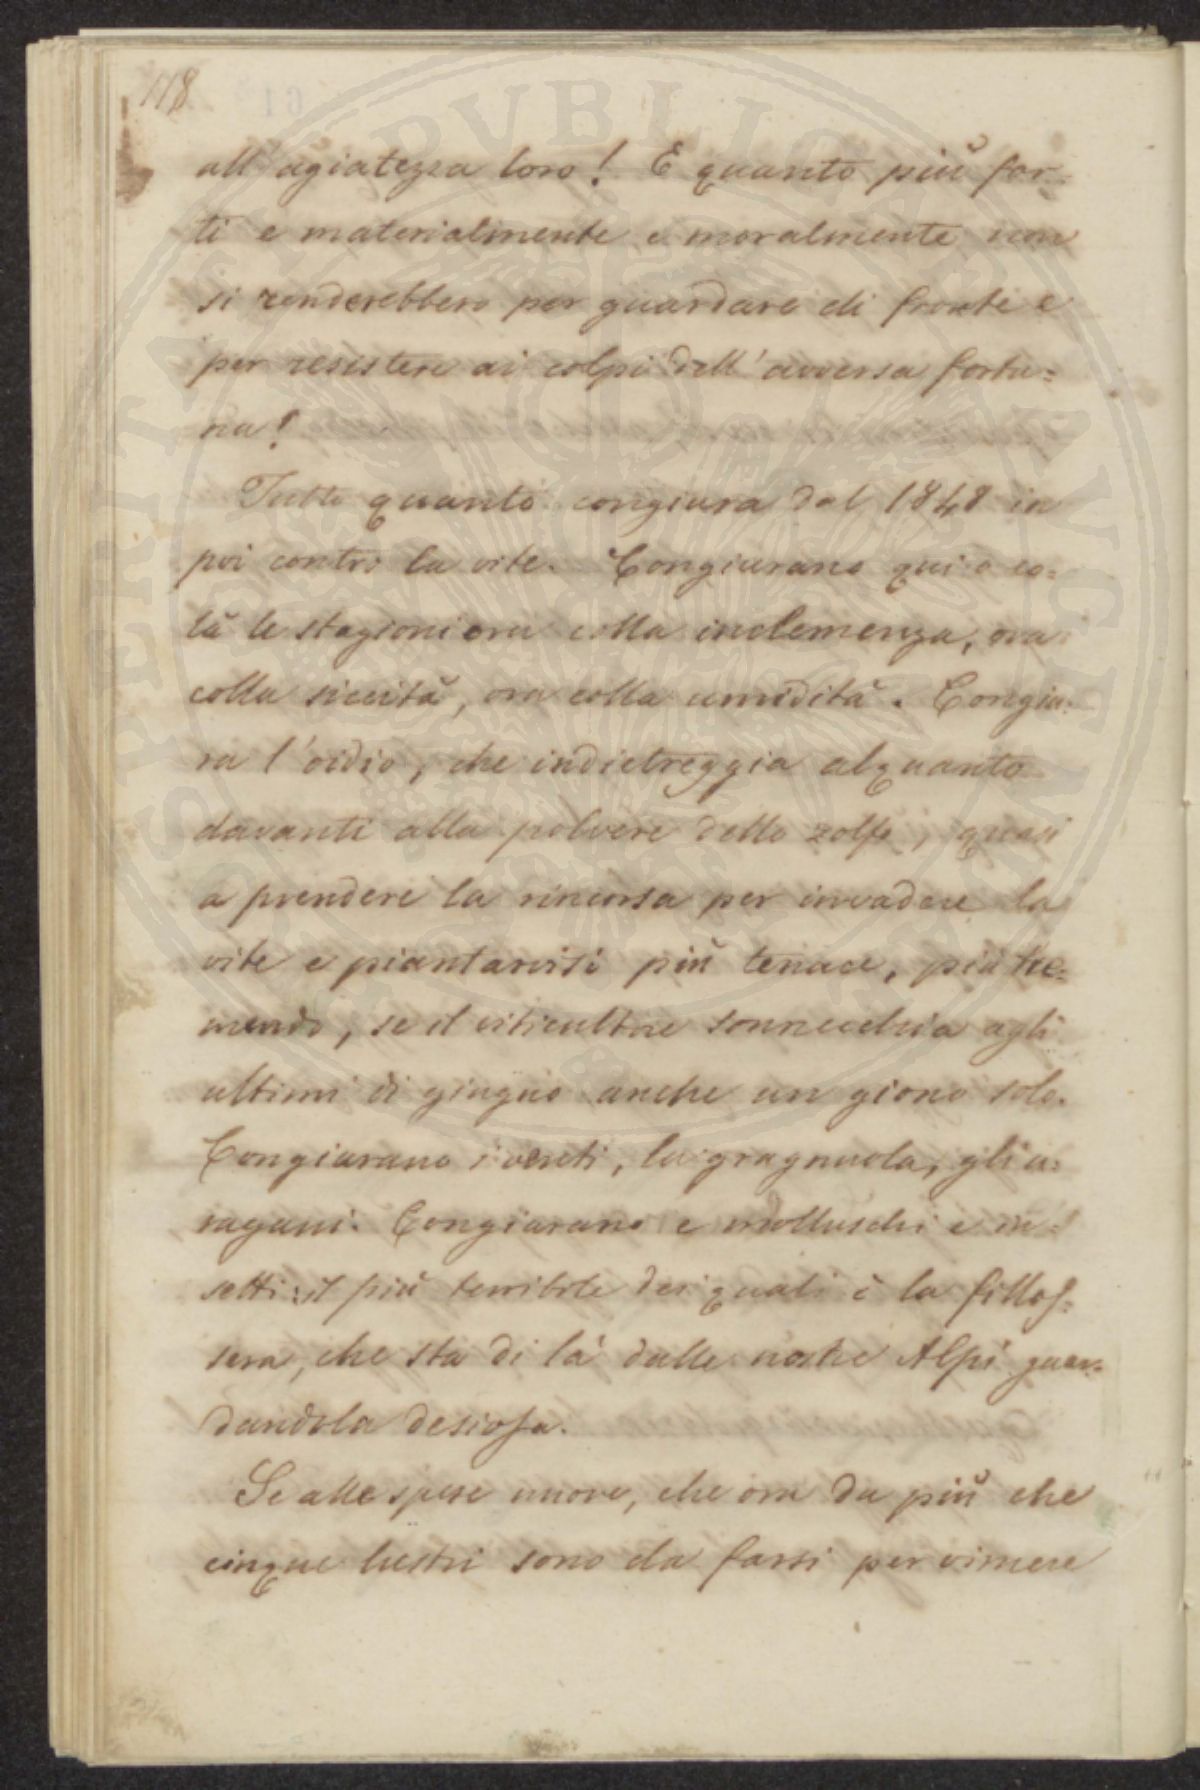 118
all'agiatezza loro! E quanto più for-
ti e materialmente e moralmente non
si renderebbero per guardare di fronte e
per resistere ai colpi dell'avversa fortu=
na!
Tutto quanto congiura dal 1848 in
poi contro la vite. Congiurano qui e co-
là le stagioni ora colla inclemenza, ora
colla siccità, ora colla umidità. Congiu-
ra l'oidio, che indietreggia alquanto
davanti alla polvere dello zolfo, quasi
a prendere la rincorsa per invadere la
vite e piantarvisi più tenace, più tre-
mendo, se il viticultore sonnecchia agli
ultimi di giugno anche un giorno solo.
Congiurano i venti, la gragnuola, gli u-
ragani. Congiurano e molluschi e in-
setti: il più terribile dei quali è la fillos-
sera, che sta di là dalle nostre Alpi guar-
dandola desiosa.
Se alle spese nuove, che ora da più che
cinque lustri sono da farsi per vincere